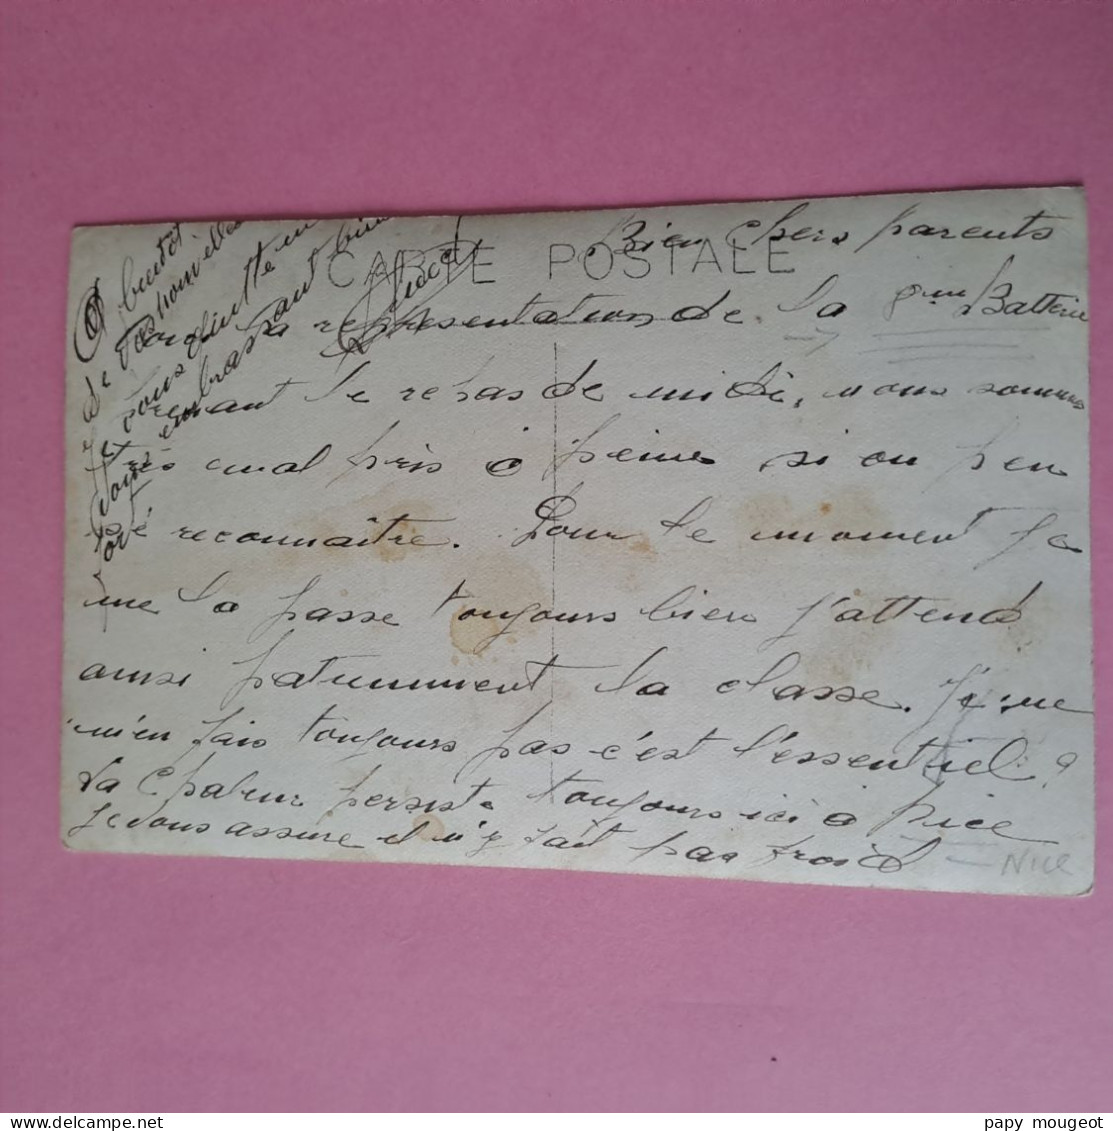 CARTE POSTALE
Bien chers parents
la représentation de la 8eme Batterie
avant le repas de midi, nous sommes
très mal pris à peine si on peu
reconnaître. Pour le moment ja
me la passe toujours bien j'attend
ainsi patiemment la classe. Je ne
m'en fais toujours pas c'est l'essentiel.
La Chaleur persiste toujours ici à Nice
Je vous assure il n'y fait pas froid
Nice
A bientôt
de vos nouvelles
Je vous quitte en
vous embrassant bien
papy mougeot